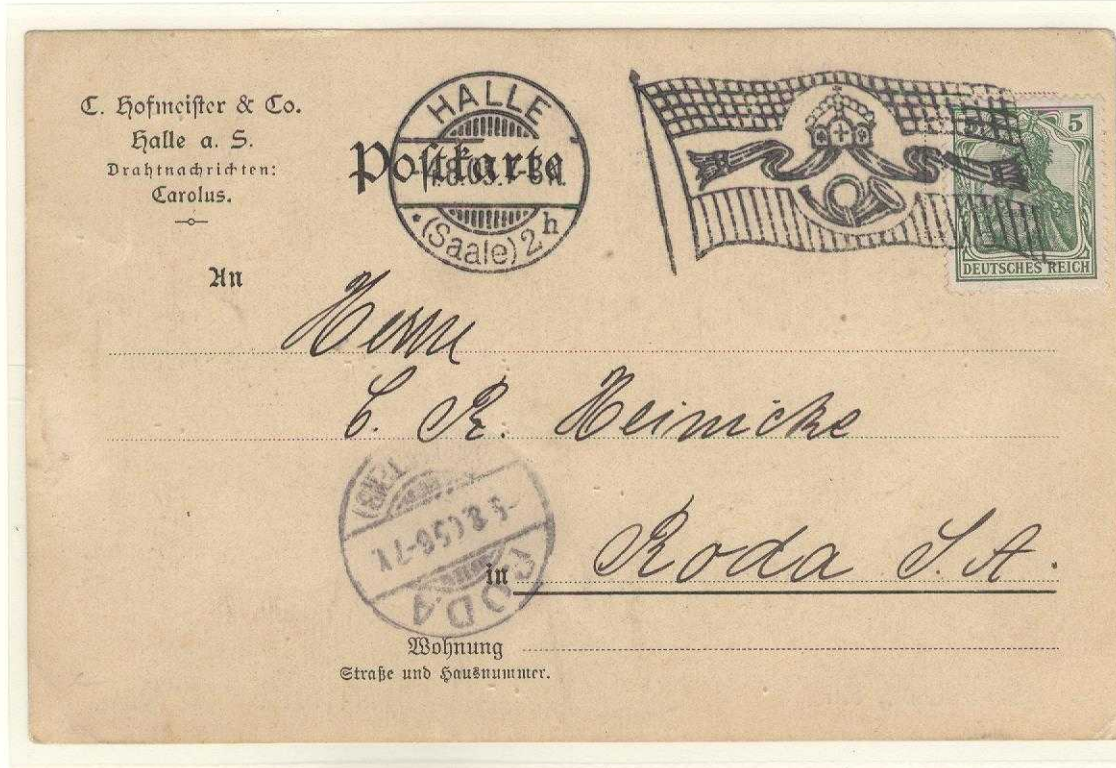 C. Hofmeister & Co.
Halle a. S.
Drahtnachrichten:
Carolus.
Postkarte
HALLE
(Saale) 2 h
5
DEUTSCHES REICH
An
Herrn
C. R. Heinicke
in Roda S. A.
RODA
Wohnung
Straße und Hausnummer.